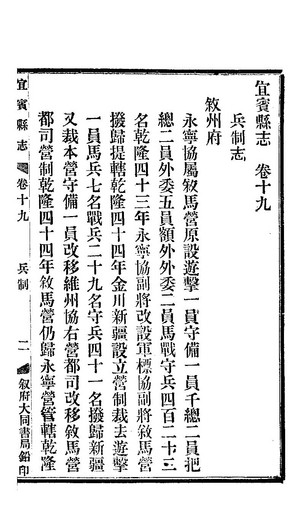 宜賓縣志　卷十九
兵制志
敘州府
永寧協屬敘馬營原設遊擊一員守備一員千總二員把
總二員外委五員額外外委二員馬戰守兵四百二十三
名乾隆四十三年永寧協副將改設軍標協副將敘馬營
撥歸提轄乾隆四十四年金川新疆設立營制裁去遊擊
一員馬兵七名戰兵二十九名守兵四十一名撥歸新疆
又裁本營守備一員改移維州協右營都司改移敘馬營
都司營制乾隆四十四年敘馬營仍歸永寧營管轄乾隆
宜賓縣志　卷十九　兵制　二　敘府大同書局鉛印